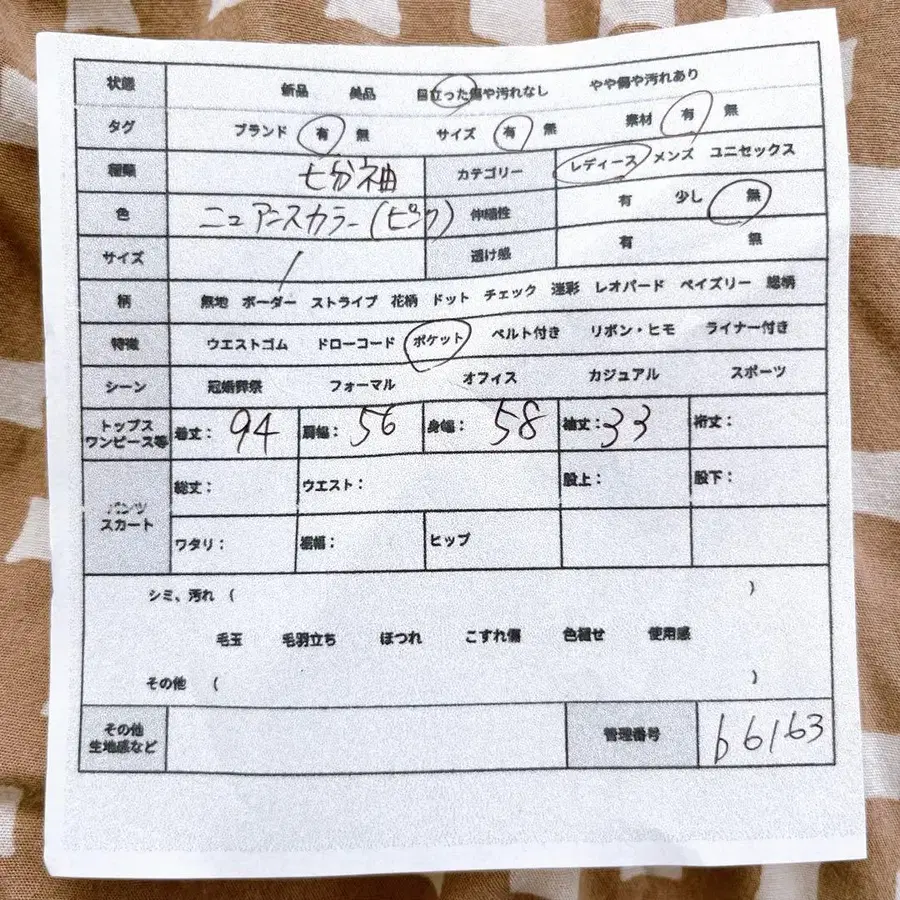 状態 新品 美品 目立った傷や汚れなし やや傷や汚れあり
タグ ブランド 有 無 サイズ 有 無 素材 有 無
種類 七分袖 カテゴリー レディース メンズ ユニセックス
色 ニュアンスカラー(ピンク) 伸縮性 有 少し 無
サイズ / 透け感 有 無
柄 無地 ボーダー ストライプ 花柄 ドット チェック 迷彩 レオパード ペイズリー 総柄
特徴 ウエストゴム ドローコード ポケット ベルト付き リボン・ヒモ ライナー付き
シーン 冠婚葬祭 フォーマル オフィス カジュアル スポーツ
トップス
ワンピース等 着丈: 94 肩幅: 56 身幅: 58 袖丈: 33 裄丈:
パンツ
スカート 総丈: ウエスト: 股上: 股下:
ワタリ: 裾幅: ヒップ
シミ、汚れ ( )
毛玉 毛羽立ち ほつれ こすれ傷 色褪せ 使用感
その他 ( )
その他
生地感など 管理番号 b6163